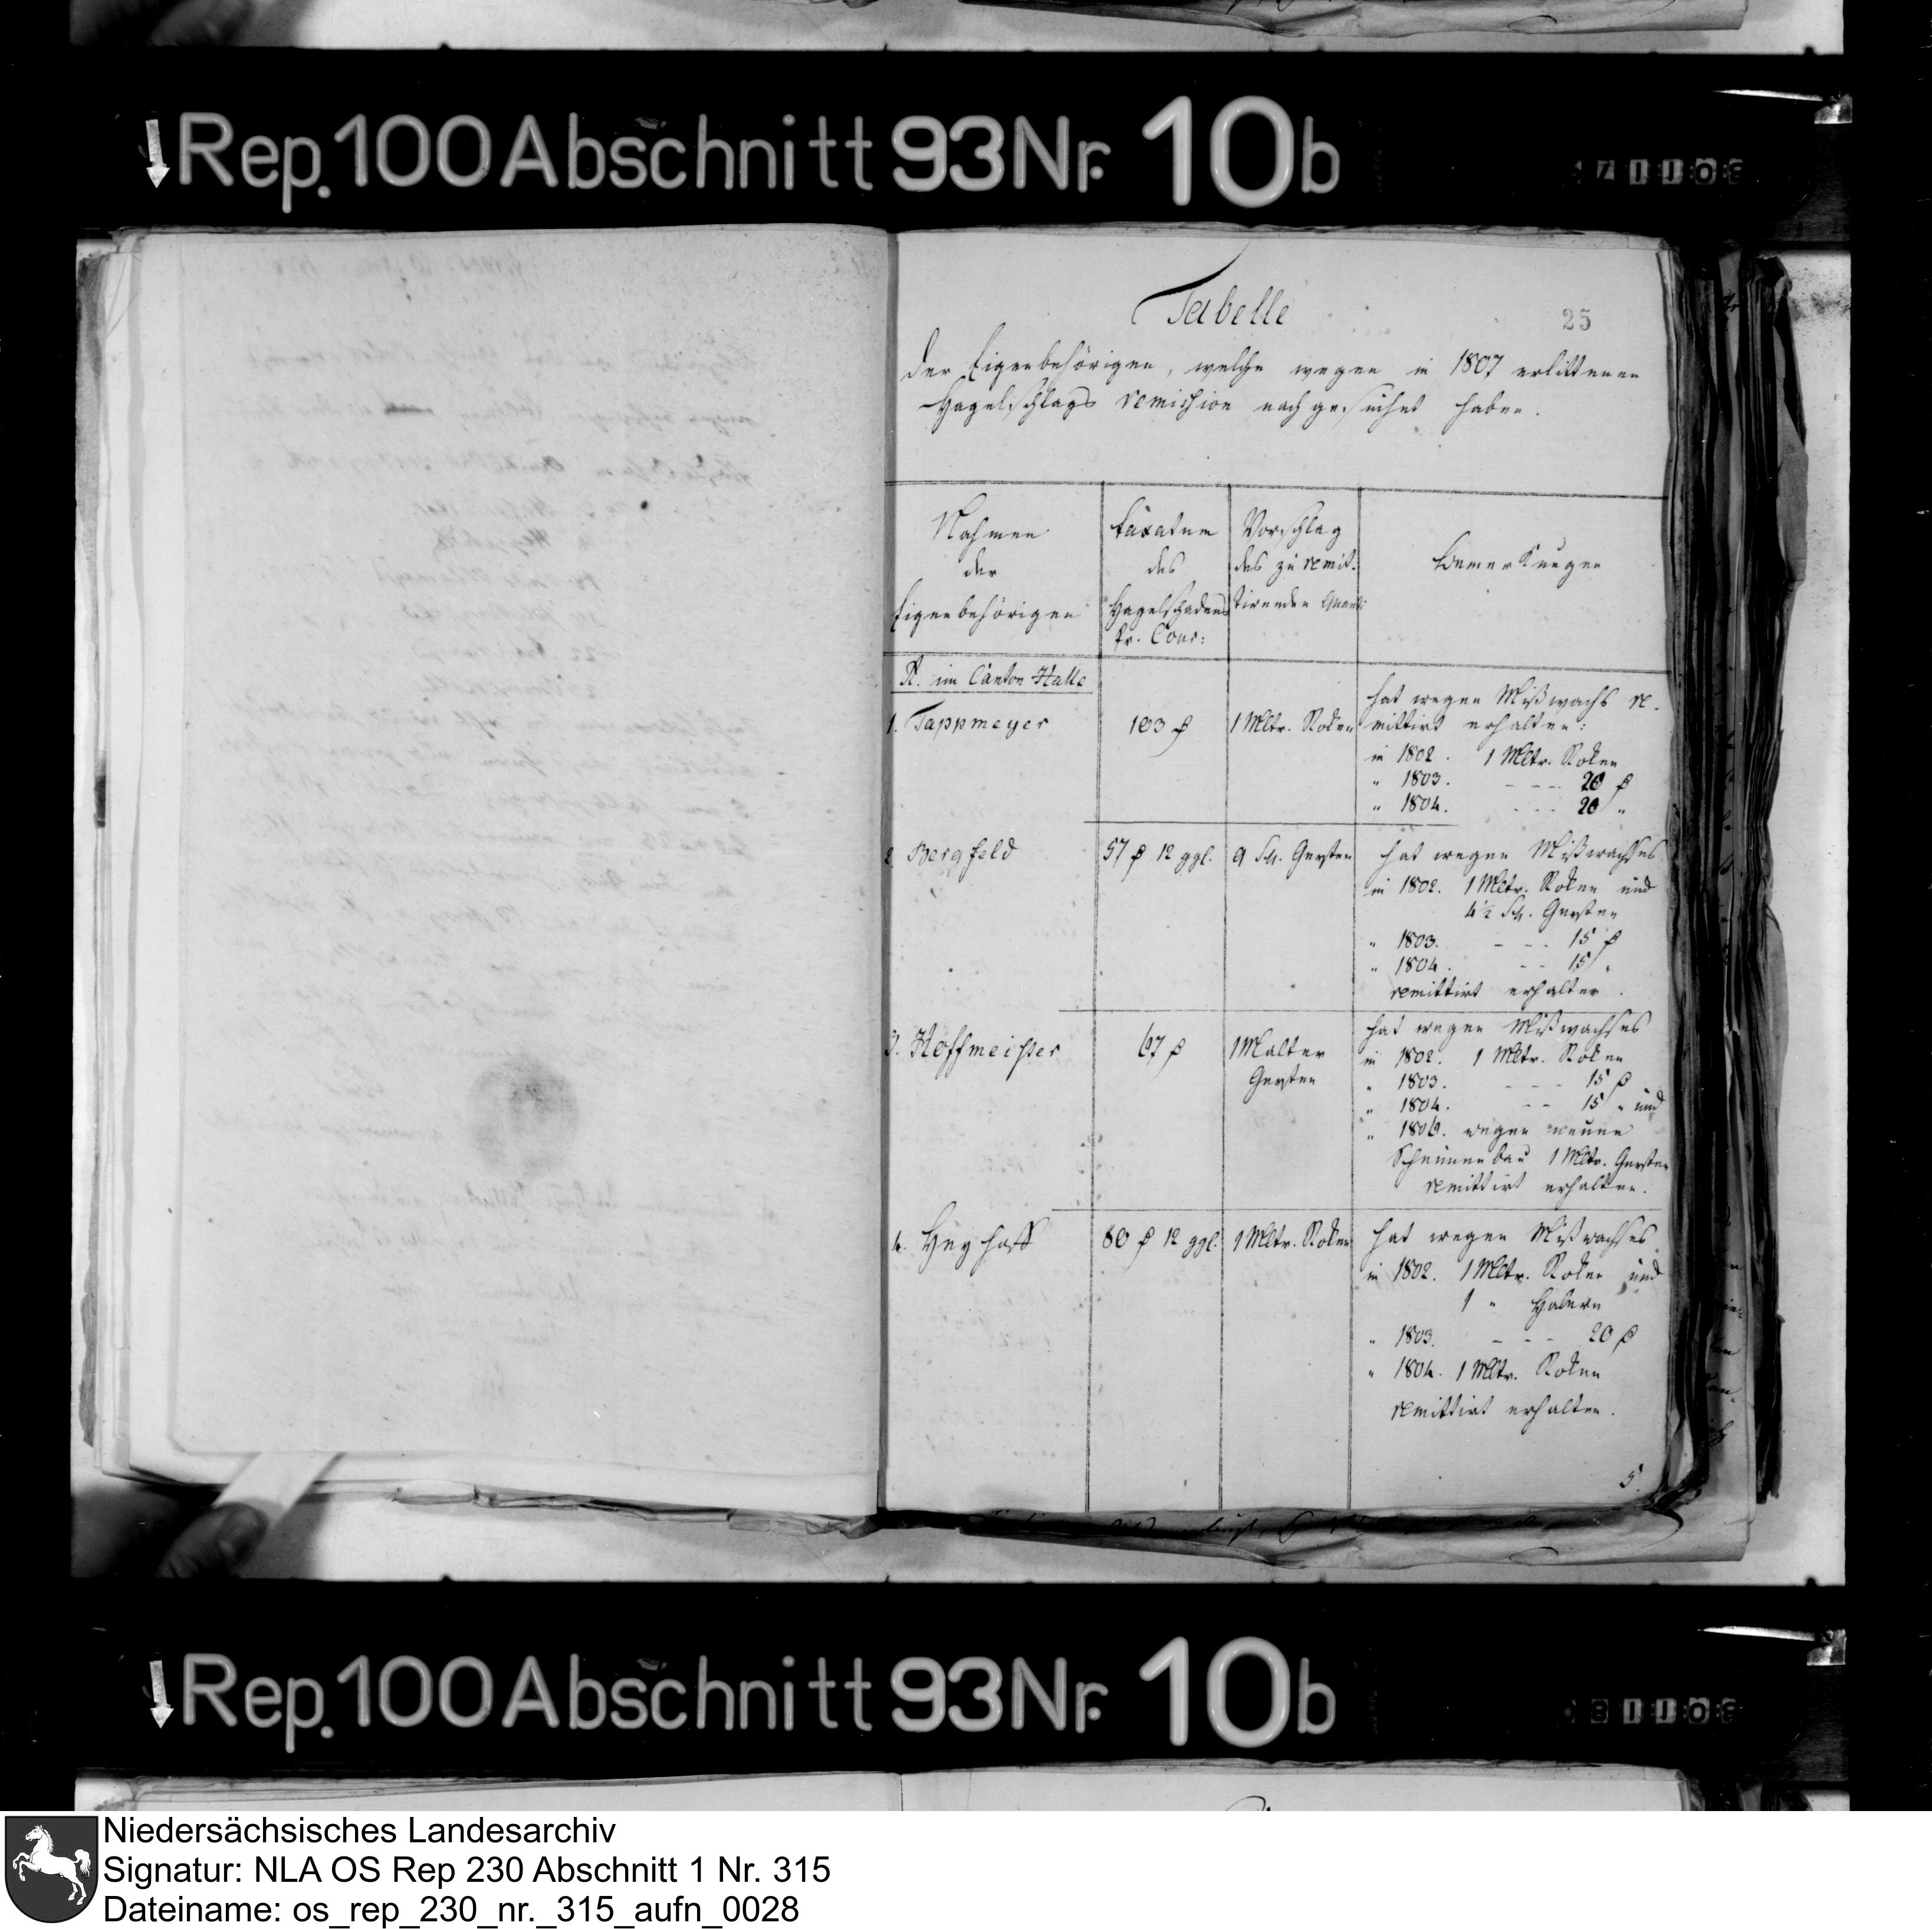 Rep. 100 Abschnitt 93 Nr. 10b
Tabelle
25
der Eigenbehörigen, welche wegen in 1807 erlittenen
Hagelschlags remission nachgesuchet haben.
Nahmen
der
Eigenbehörigen
Taxatum
des
Hagelschadens
pr. Cour:
Vorschlag
des zu remit-
tirenden Quanti
Bemerkungen
A. im Canton Halle
1. Tappmeyer
103 rß
1 Mltr. Roken
hat wegen Mißwachs re-
mittirt erhalten:
in 1802. 1 Mltr. Roken
" 1803. - - - 20 rß
" 1804. - - - 20 "
2. Bergfeld
57 rß 12 ggl.
9 Sch. Gersten
hat wegen Mißwachses
in 1802. 1 Mltr. Roken und
4 1/2 Sch. Gersten
" 1803. - - - 15 rß
" 1804. - - 15 "
remittirt erhalten.
3. Hoffmeister
67 rß
1 Malter
Gersten
hat wegen Mißwachses
in 1802. 1 Mltr. Roken
" 1803. - - - 15 rß
" 1804. - - 15 " und
" 1806. wegen neuen
Scheunenbau 1 Mltr. Gersten
remittirt erhalten.
4. Heyhoff
80 rß 12 ggl.
1 Mltr. Roken
hat wegen Mißwachses
in 1802. 1 Mltr. Roken und
1 " Habern
" 1803. - - - 20 rß
" 1804. 1 Mltr. Roken
remittirt erhalten.
5.
Rep. 100 Abschnitt 93 Nr. 10b
Niedersächsisches Landesarchiv
Signatur: NLA OS Rep 230 Abschnitt 1 Nr. 315
Dateiname: os_rep_230_nr._315_aufn_0028